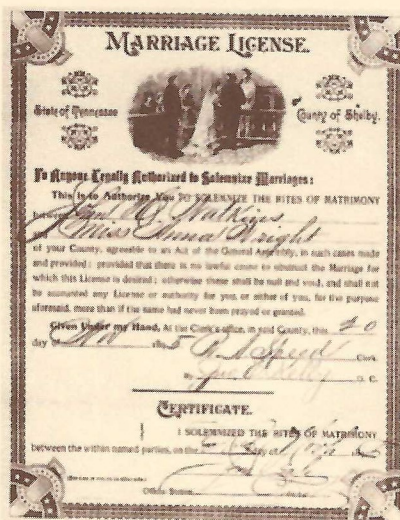 MARRIAGE LICENSE.
State of Tennessee
County of Shelby.
To Anyone Legally Authorized to Solemnize Marriages:
This is to Authorize You TO SOLEMNIZE THE RITES OF MATRIMONY
Watkins
Miss Anna Wright
of your County, agreeable to an Act of the General Assembly, in such cases made
and provided; provided that there is no lawful cause to obstruct the Marriage for
which this License is desired; otherwise these shall be null and void, and shall not
be accounted any License or authority for you, or either of you, for the purpose
aforesaid, more than if the same had never been prayed or granted.
Given Under my Hand, At the Clerk's office, in said County, this 20
day 5 Speed Clerk.
By D. C.
CERTIFICATE.
I SOLEMNIZED THE RITES OF MATRIMONY
between the within named parties, on the